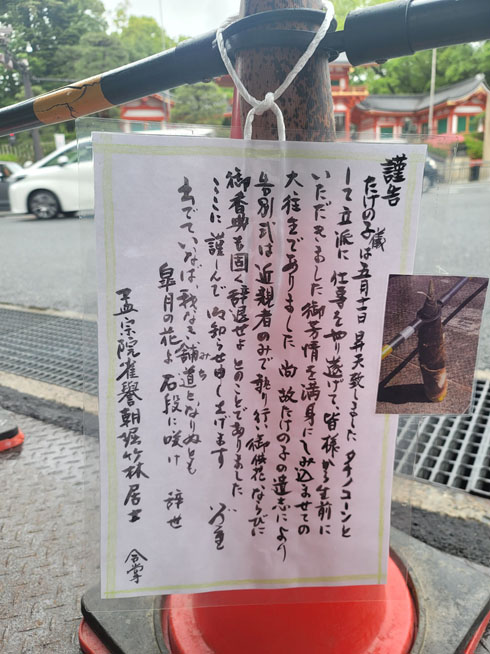 謹告
たけの子儀は五月十一日 昇天致しました タケノコーンと
して立派に仕事を切り遂げて皆様から生前に
いただきました御芳情を満身にしみ込ませての
大往生でありました 尚故たけの子の遺志により
告別式は近親者のみで執り行い御供花ならびに
御香典も固く辞退せよとのことでありました
ここに謹んで御知らせ申し上げます
出でていなば 我なき舗道となりぬとも
みち
皐月の花よ 石段に咲け 辞世
孟宗院雀誉朝堀竹林居士
合掌